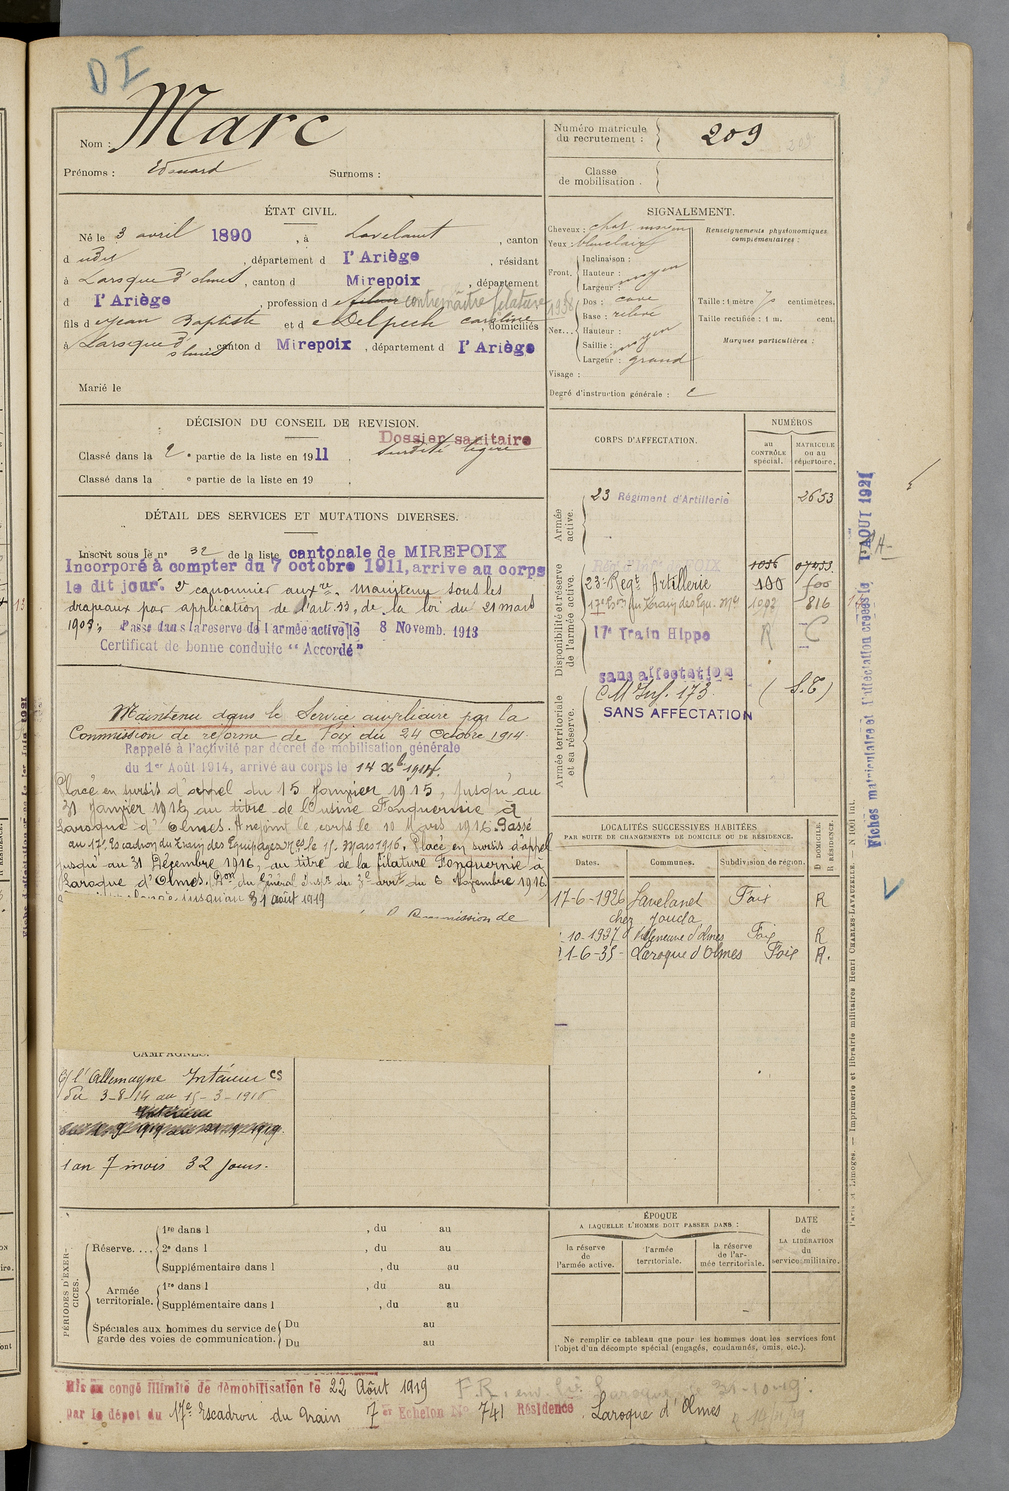 D I
Nom : Marc
Prénoms : Edouard Surnoms :
Numéro matricule
du recrutement : 209
Classe
de mobilisation .
ÉTAT CIVIL.
Né le 3 avril 1890, à Lavelanet, canton
d udit, département d l'Ariège, résidant
à Laroque d'olmes, canton d Mirepoix, département
d l'Ariège, profession d fileur contremaître filature 1938
fils d Jean Baptiste et d Delpech Caroline, domiciliés
à Laroque d'olmes, canton d Mirepoix, département d l'Ariège
Marié le
SIGNALEMENT.
Cheveux : chat. moyen
Yeux : bleu clair
Front. Inclinaison :
Hauteur : moyen
Largeur :
Nez... Dos : cave
Base : relevé
Hauteur : moyen
Saillie : moyen
Largeur : grand
Visage :
Renseignements physionomiques
complémentaires :
Taille : 1 mètre 70 centimètres.
Taille rectifiée : 1 m. cent.
Marques particulières :
Degré d'instruction générale : 2
DÉCISION DU CONSEIL DE REVISION.
Dossier sanitaire
Classé dans la 2e partie de la liste en 1911. surdité légère
Classé dans la e partie de la liste en 19
DÉTAIL DES SERVICES ET MUTATIONS DIVERSES.
Inscrit sous le n° 32 de la liste cantonale de MIREPOIX
Incorporé à compter du 7 octobre 1911, arrive au corps
le dit jour. 2e canonnier auxre. Maintenu sous les
drapeaux par application de l'art. 33, de la loi du 21 mars
1905. Passé dans la réserve de l'armée active le 8 Novemb. 1913
Certificat de bonne conduite "Accordé"
Maintenu dans le Service auxiliaire par la
Commission de réforme de Foix du 24 Octobre 1914
Rappelé à l'activité par décret de mobilisation générale
du 1er Août 1914, arrivé au corps le 14 Xbre 1914.
Placé en sursis d'appel du 15 Janvier 1915, jusqu'au
31 Janvier 1916, au titre de l'usine Fonquernie à
Laroque d'Olmes. A rejoint le corps le 10 Mars 1916. Passé
au 17e Escadron du Train des Equipages Mres le 15 mars 1916. Placé en sursis d'appel
jusqu'au 31 Décembre 1916, au titre de la filature Fonquernie à
Laroque d'Olmes. Don du Général Subd du 3e arrt du 6 Novembre 1916.
jusqu'au 31 août 1919
Commission de
CORPS D'AFFECTATION.
NUMÉROS
au
CONTRÔLE
spécial.
MATRICULE
ou au
répertoire.
Armée
active.
23 Régiment d'Artillerie 2653
Disponibilité et réserve
de l'armée active.
1036
23e Regt Artillerie 100 500
17e Eon du Train des Equ. Mres 1902 816
17e Train Hippo R
sans affectation
Armée territoriale
et sa réserve.
C M Inf. 173 (S.T)
SANS AFFECTATION
LOCALITÉS SUCCESSIVES HABITÉES
PAR SUITE DE CHANGEMENTS DE DOMICILE OU DE RÉSIDENCE.
Dates. Communes. Subdivision de région. D DOMICILE. R RÉSIDENCE.
17-6-1926 Lavelanet Foix R
chez Jouela
10-1927 Villeneuve d'olmes Foix R
21-6-35- Laroque d'Olmes Foix R.
CAMPAGNES.
c/ l'Allemagne Intérieur CS
du 3-8-14 au 15-3-1916
1 an 7 mois 32 jours.
PÉRIODES D'EXERCICES.
Réserve.... 1re dans l , du au
2e dans l , du au
Supplémentaire dans l , du au
Armée
territoriale. 1re dans l , du au
Supplémentaire dans l , du au
Spéciales aux hommes du service de
garde des voies de communication. Du au
Du au
ÉPOQUE
A LAQUELLE L'HOMME DOIT PASSER DANS :
la réserve
de
l'armée active.
l'armée
territoriale.
la réserve
de l'ar-
mée territoriale.
DATE
de
LA LIBÉRATION
du
service militaire.
Ne remplir ce tableau que pour les hommes dont les services font
l'objet d'un décompte spécial (engagés, condamnés, omis, etc.).
Mis en congé illimité de démobilisation le 22 Août 1919 F.R. Laroque 31-10-19.
par le dépôt du 17e Escadron du Train 7er Echelon No 741 Résidence Laroque d'Olmes
Fiches matriculaire et d'affectation créées le 1 AOUT 1921
Paris et Limoges. — Imprimerie et librairie militaires Henri CHARLES-LAVAUZELLE.